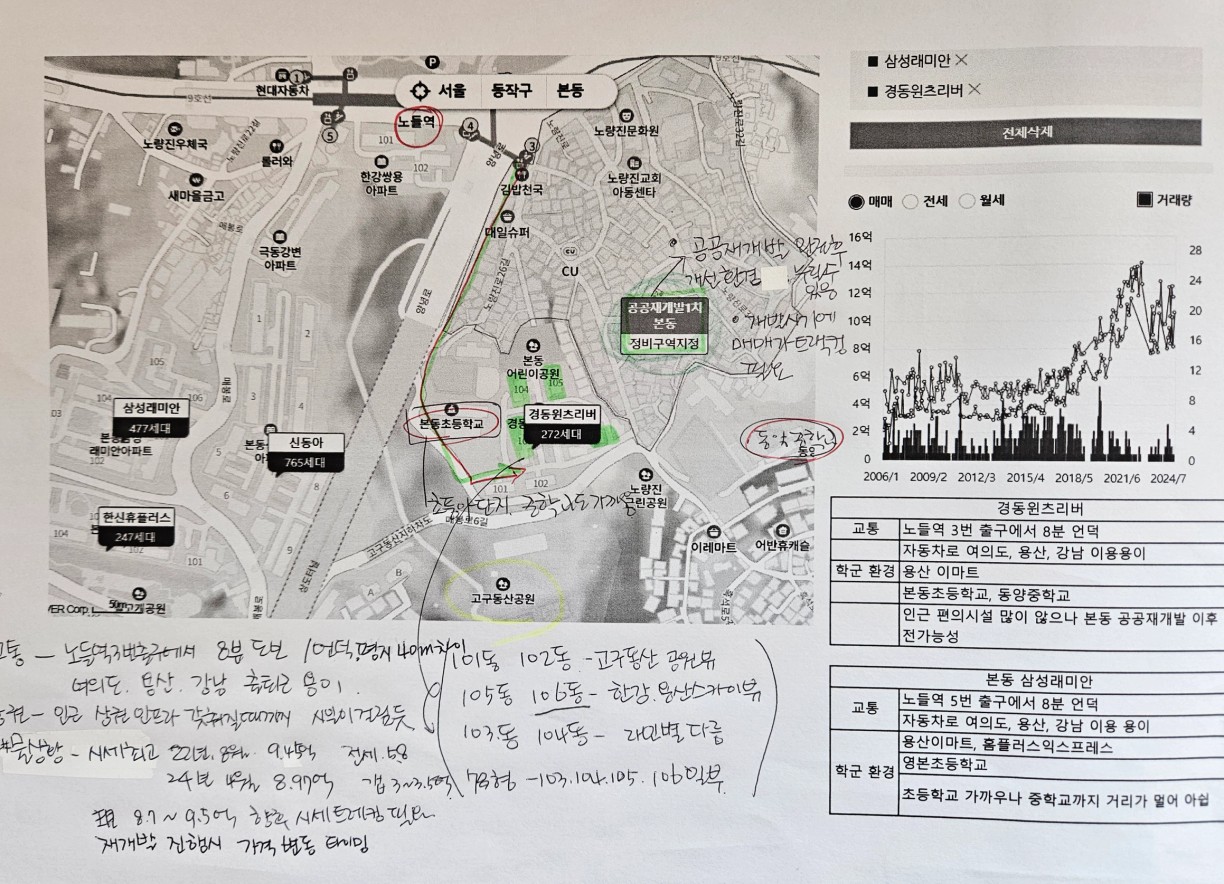 서울 동작구 본동
현대자동차
9호선
노들역
노량진우체국
롤러와
새마을금고
한강쌍용
아파트
극동강변
아파트
김밥천국
대일슈퍼
노량진문화원
노량진교회
아동센타
CU
양녕로
노량진로26길
공공재개발1차
본동
정비구역지정
공공재개발 완료후
개선환경 누릴수
있음
재개발시기에
매매가트래킹
필요
본동
어린이공원
104 105
경동윈츠리버
272세대
본동초등학교
동양중학교
삼성래미안
477세대
신동아
765세대
한신휴플러스
247세대
초품아단지 중학교도가까움
노량진
근린공원
매봉로6길
고구동산지하차도
상도터널
이레마트
어반휴캐슬
고구동산공원
50m
■ 삼성래미안 ×
■ 경동윈츠리버 ×
전체삭제
매매 전세 월세 거래량
16억 28
14억 24
12억 20
10억 16
8억 12
6억 8
4억 4
2억 0
0
2006/1 2009/2 2012/3 2015/4 2018/5 2021/6 2024/7
경동윈츠리버
교통 노들역 3번 출구에서 8분 언덕
자동차로 여의도, 용산, 강남 이용용이
학군 환경 용산 이마트
본동초등학교, 동양중학교
인근 편의시설 많이 않으나 본동 공공재개발 이후
전가능성
본동 삼성래미안
교통 노들역 5번 출구에서 8분 언덕
자동차로 여의도, 용산, 강남 이용 용이
학군 환경 용산이마트, 홈플러스익스프레스
영본초등학교
초등학교 가까우나 중학교까지 거리가 멀어 아쉽
교통 - 노들역3번출구에서 8분 도보 / 언덕,평지
여의도. 용산. 강남 출퇴근 용이.
상권 - 인근 상권 인프라 갖춰질때까지 시일이걸릴듯
매물상황 - 시세 최고 22년.8월. 9.4억 전세.58
24년 4월 8.97억 갭 3~3.5억
표 8.7 ~ 9.5억 향후 시세트레킹 필요
재개발 진행시 가격 변동 타이밍
101동 102동 - 고구동산 공원뷰
105동 106동 - 한강.용산스카이뷰
103동 104동 - 라인별 다름
78형 - 103.104.105.106일부.